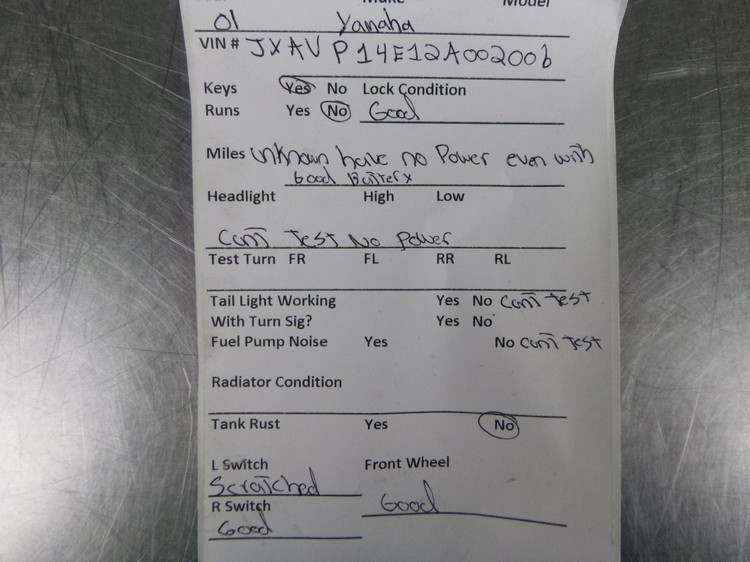 Make Model
01 Yamaha
VIN # JYAVP14E12A002006
Keys Yes No Lock Condition
Runs Yes No Good
Miles unknown have no Power even with
Good Battery
Headlight High Low
Can't Test No Power
Test Turn FR FL RR RL
Tail Light Working Yes No Can't test
With Turn Sig? Yes No
Fuel Pump Noise Yes No Can't Test
Radiator Condition
Tank Rust Yes No
L Switch Front Wheel
Scratched
R Switch Good
Good